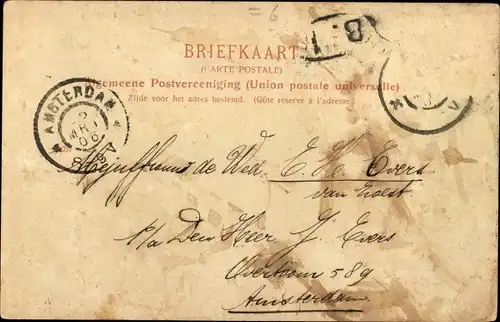 =6
B
BRIEFKAART
(CARTE POSTALE)
Algemeene Postvereeniging (Union postale universelle)
Zijde voor het adres bestemd. (Côté réservé à l'adresse)
AMSTERDAM
2
MEI
06
Mejuffrouw de Wed. E. H. Evers
van Soest
p/a Den Heer J. Evers
Overtoom 589
Amsterdam